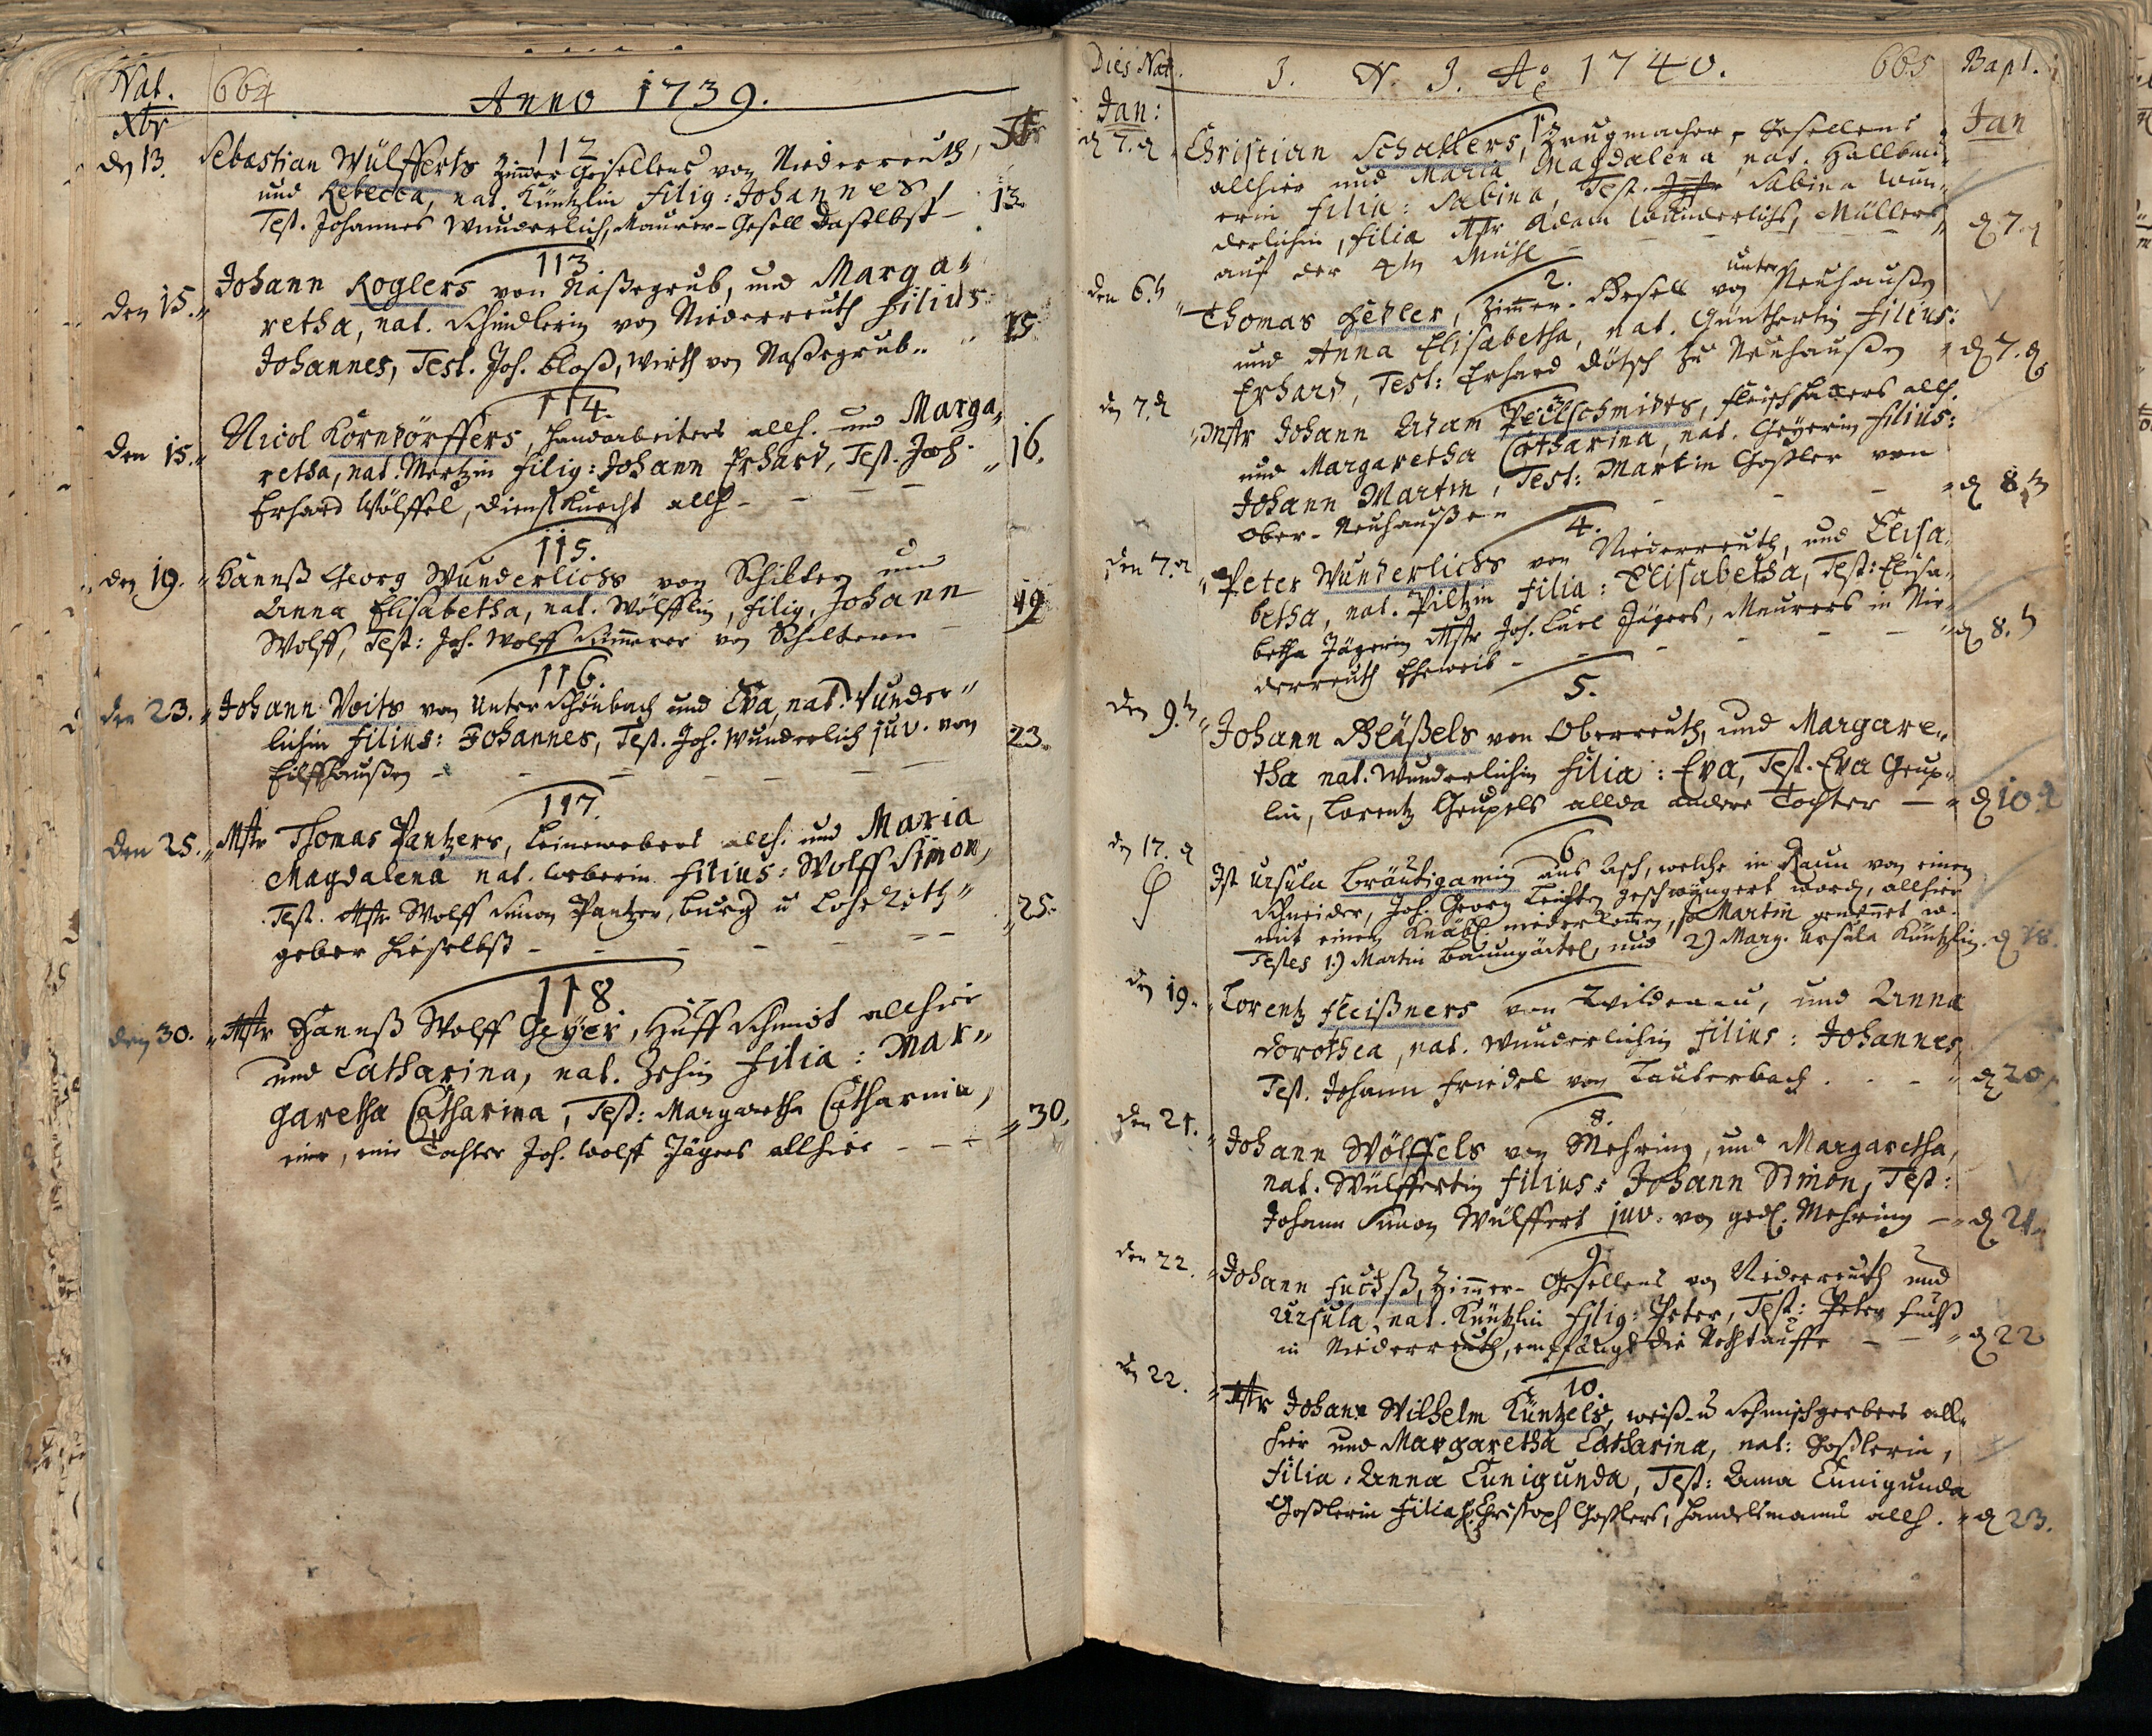 Nat. 664 Anno 1739.
Xbr
112 Xbr
den 13. Sebastian Wülfferts Zimmer Gesellens von Niederreuth,
und Rebecca, nat. Küntzlin filig: Johannes,
Test. Johannes Wunderlich, Maurer-Gesell daselbst - 13.
113
den 15. Johann Roglers von Naßegrub, und Marga„
retha, nat. Schindlerin von Niederreuth filius
Johannes, Test. Joh. Bloß, Wirth von Naßegrub. „ 15
114.
den 15. Nicol Korndörffers, Handarbeiters allh. und Marga„
retha, nat. Mertzin filig: Johann Erhard, Test. Joh. „ 16.
Erhard Wölffel, Dienstknecht allh - - -
115.
den 19. Hannß Georg Wunderlichs von Schiltern und
Anna Elisabetha, nat. Wölfflin, filig. Johann
Wolff, Test: Joh. Wolff Simmerer von Schiltern - 19
116.
den 23. „ Johann Voits von Unter Schönbach und Eva, nat. Wunder„
lichin filius: Johannes, Test. Joh. Wunderlich juv. von 23.
Eilffhaußen - - - - - -
117.
den 25. „ Mstr Thomas Pantzers, Leinewebers allh. und Maria
Magdalena nat. Weberin filius: Wolff Simon,
Test. Mstr Wolff Simon Pantzer, Burg. u Loh Roth„ „ 25.
geber hieselbst - - - - - -
118.
den 30. „ Mstr Hannß Wolff Geyer, Huff Schmidt allhier
und Catharina, nat. Zehin filia: Mar„
garetha Catharina, Test: Margaretha Catharina,
eine Tochter Joh. Wolff Jägers allhier - - - „ 30.
Dies Nat. J. N. J. Ao 1740. 665 Bapt.
Jan: 1. Jan
d 7. Christian Schallers, Zeugmacher, Gesellens
allhier und Maria Magdalena, nat. Hallbau„
erin filia: Sabina, Test. Sabina Wun„
derlichin, filia Mstr Adam Wunderlichs, Müllers d 7.
auf der 4tn Mühl - - -
2.
den 6. Thomas Hedler, Zimmer-Gesell von unter Neuhaußen
und Anna Elisabetha, nat. Günthertin filius:
Erhard, Test: Erhard Dötsch zu Neuhaußen „ d 7.
3.
den 7. „ Mstr Johann Adam Peilschmidts, Fleischhackers allh.
und Margaretha Catharina, nat. Geyerin filius:
Johann Martin, Test: Martin Goßler von
Ober-Neuhaußen - - - „ d 8
4.
den 7. „ Peter Wunderlichs von Niederreuth, und Elisa„
betha, nat. Piltzin filia: Elisabetha, Test: Elisa„
betha Jägerin Mstr Joh. Carl Jägers, Maurers in Nie„
derreuth Eheweib - - - „ d 8.
5.
den 9. „ Johann Bläßels von Oberreuth, und Margare„
tha nat. Wunderlichin filia: Eva, Test. Eva Geup„
lin, Lorentz Geupels allda andere Tochter - „ d 10
6
den 17. Ist Ursula Bräutigamin aus Asch, welche in Raun von einem
Schneider, Joh. Georg geschwängert worden, allhier
mit einem Knäbl. niederkommen, so Martin genennet w.
Testes 1.) Martin Baumgärtel, und 2) Marg. Ursula Küntzlin. d 18.
den 19. „ Lorentz Fleißners von Wildenau, und Anna
Dorothea, nat. Wunderlichin filius: Johannes,
Test. Johann Friedel von Lauterbach. - - „ d 20.
8.
den 21. „ Johann Wölffels von Mehring, und Margaretha,
nat. Wülffertin filius: Johann Simon, Test:
Johann Simon Wülffert juv. von ged. Mehring - „ d 21.
9
den 22. „ Johann Fuchß, Zimmer-Gesellens von Niederreuth und
Ursula, nat. Küntzlin filig: Peter, Test: Peter Fuchß
in Niederreuth, empfängt die Nothtauffe - - „ d 22
10.
den 22. „ Mstr Johann Wilhelm Küntzels, weiß- u Sehmischgerbers all„
hier und Margaretha Catharina, nat: Goßlerin,
filia: Anna Cunigunda, Test: Anna Cunigunda
Goßlerin filia H. Christoph Goßlers, Handelsmanns allh. „ d 23.